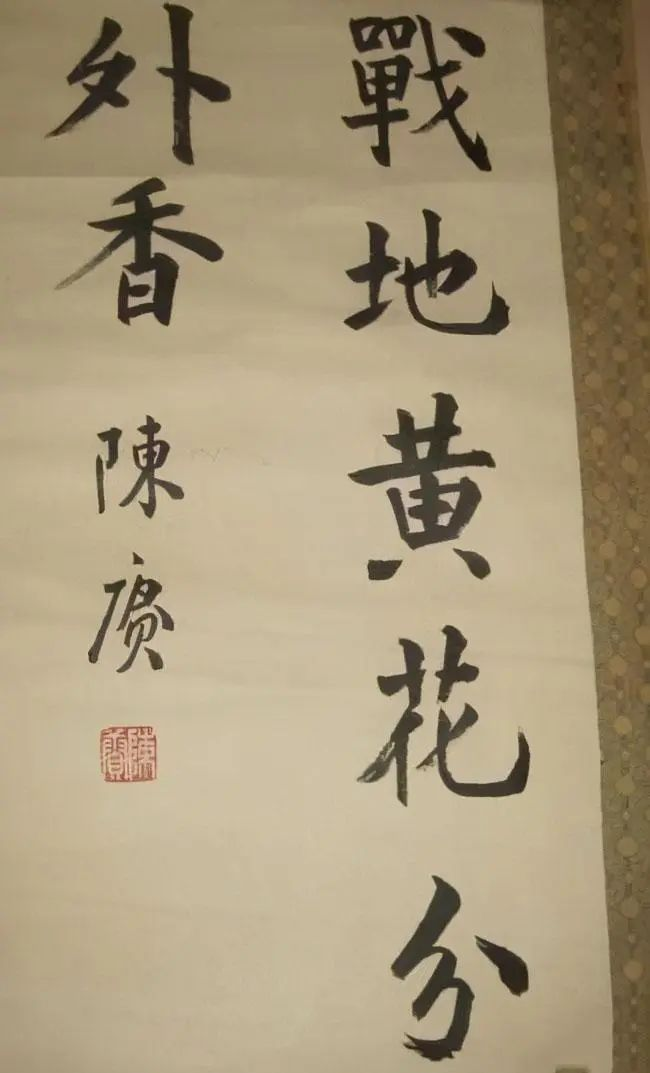 戰地黄花分
外香
陳赓
陳賡